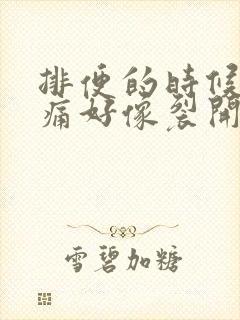 排便的時候
痛好像裂開
雪碧加糖